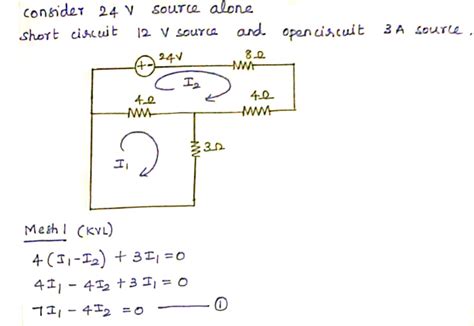 consider 24 V source alone
short circuit 12 V source and open circuit 3 A source.
+- 24V 8Ω
I2
4Ω 4Ω
3Ω
I1
Mesh 1 (KVL)
4(I1-I2) + 3I1 = 0
4I1 - 4I2 + 3I1 = 0
7I1 - 4I2 = 0 —— ①